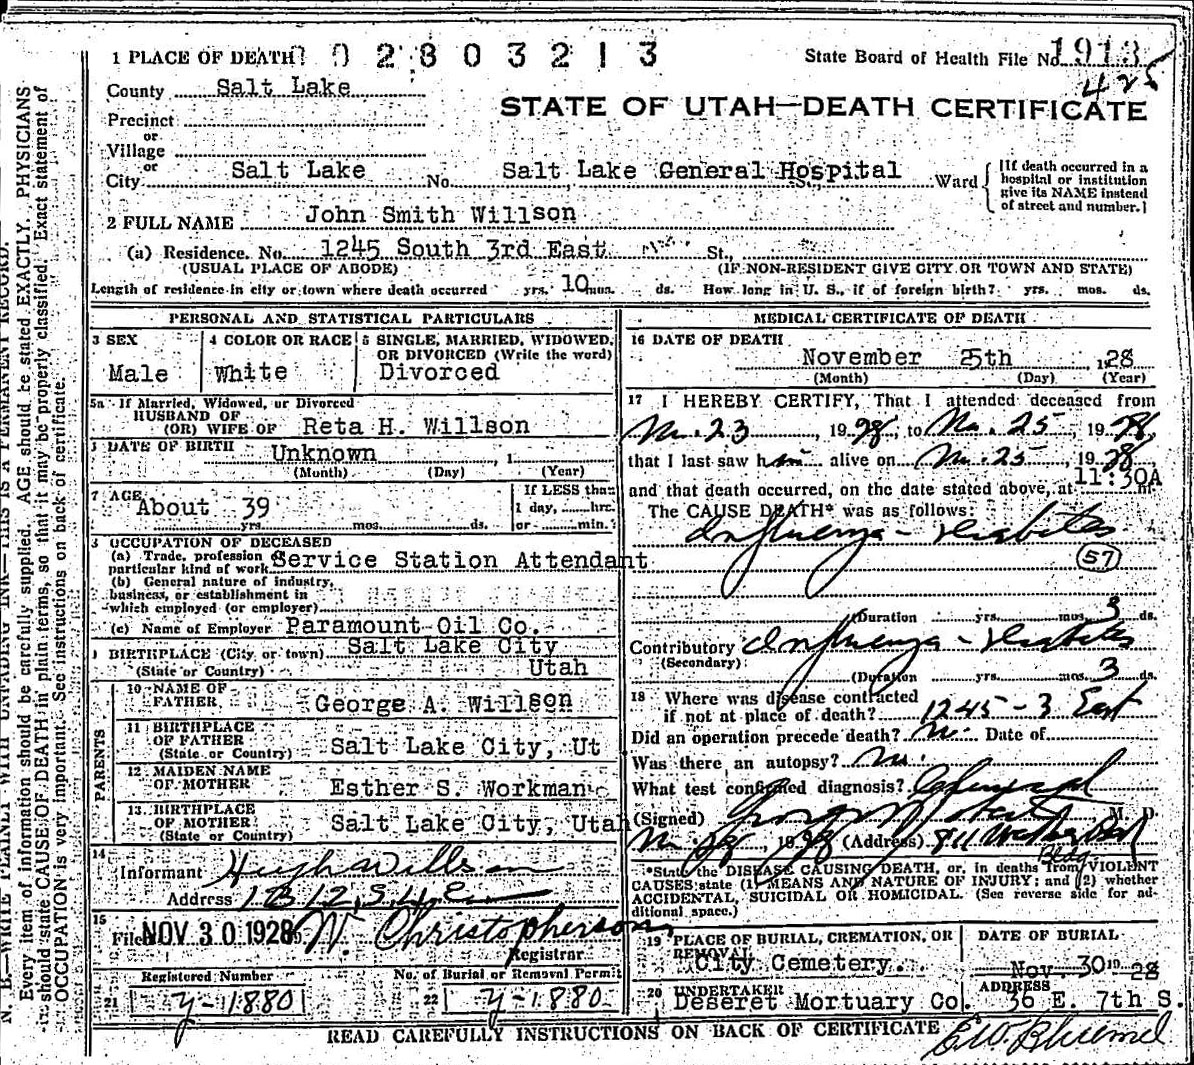 1 PLACE OF DEATH 02803213
State Board of Health File No. 1913
425
County Salt Lake
STATE OF UTAH—DEATH CERTIFICATE
Precinct
or
Village
or
City Salt Lake No. Salt Lake General Hospital St., Ward
[If death occurred in a
hospital or institution
give its NAME instead
of street and number.]
2 FULL NAME John Smith Willson
(a) Residence. No. 1245 South 3rd East St.,
(USUAL PLACE OF ABODE) (IF NON-RESIDENT GIVE CITY OR TOWN AND STATE)
Length of residence in city or town where death occurred yrs. 10 mos. ds. How long in U. S., if of foreign birth? yrs. mos. ds.
PERSONAL AND STATISTICAL PARTICULARS
3 SEX
Male
4 COLOR OR RACE
White
5 SINGLE, MARRIED, WIDOWED,
OR DIVORCED (Write the word)
Divorced
5a If Married, Widowed, or Divorced
HUSBAND OF
(OR) WIFE OF Reta H. Willson
DATE OF BIRTH Unknown, 1
(Month) (Day) (Year)
7 AGE About 39
yrs. mos. ds.
If LESS than
1 day, hrs.
or min.
OCCUPATION OF DECEASED
(a) Trade, profession or
particular kind of work Service Station Attendant
(b) General nature of industry,
business, or establishment in
which employed (or employer)
(c) Name of Employer Paramount Oil Co.
BIRTHPLACE (City or town) Salt Lake City
(State or Country) Utah
PARENTS
10 NAME OF
FATHER George A. Willson
11 BIRTHPLACE
OF FATHER
(State or Country) Salt Lake City, Ut
12 MAIDEN NAME
OF MOTHER Esther S. Workman
13 BIRTHPLACE
OF MOTHER
(State or Country) Salt Lake City, Utah
14
Informant Hugh Willson
Address
15
Filed NOV 30 1928 W. Christopherson
Registrar
Registered Number
21 y-1880
No. of Burial or Removal Permit
22 y-1880
MEDICAL CERTIFICATE OF DEATH
16 DATE OF DEATH
November 25th, 1928
(Month) (Day) (Year)
17 I HEREBY CERTIFY, That I attended deceased from
23, 1928, to 25, 1928,
that I last saw him alive on 25, 1928
and that death occurred, on the date stated above, at 11:30A m.
The CAUSE DEATH* was as follows:
Influenza - Diabetes
57
(Duration yrs. mos. 3 ds.
Contributory Influenza - Diabetes
(Secondary)
(Duration yrs. mos. 3 ds.
18 Where was disease contracted
if not at place of death? 1245 - 3 East
Did an operation precede death? No. Date of
Was there an autopsy? No.
What test confirmed diagnosis?
(Signed) M. D.
28, 1928 (Address) 811
Bldg
*State the DISEASE CAUSING DEATH, or, in deaths from VIOLENT
CAUSES state (1) MEANS AND NATURE OF INJURY; and (2) whether
ACCIDENTAL, SUICIDAL OR HOMICIDAL. (See reverse side for ad-
ditional space.)
19 PLACE OF BURIAL, CREMATION, OR
REMOVAL
City Cemetery.
DATE OF BURIAL
Nov. 30 19 28
20 UNDERTAKER
Deseret Mortuary Co.
ADDRESS
36 E. 7th S.
READ CAREFULLY INSTRUCTIONS ON BACK OF CERTIFICATE
N. B.—WRITE PLAINLY WITH UNFADING INK—THIS IS A PERMANENT RECORD.
Every item of information should be carefully supplied. AGE should be stated EXACTLY. PHYSICIANS
should state CAUSE OF DEATH in plain terms, so that it may be properly classified. Exact statement of
OCCUPATION is very important. See instructions on back of certificate.